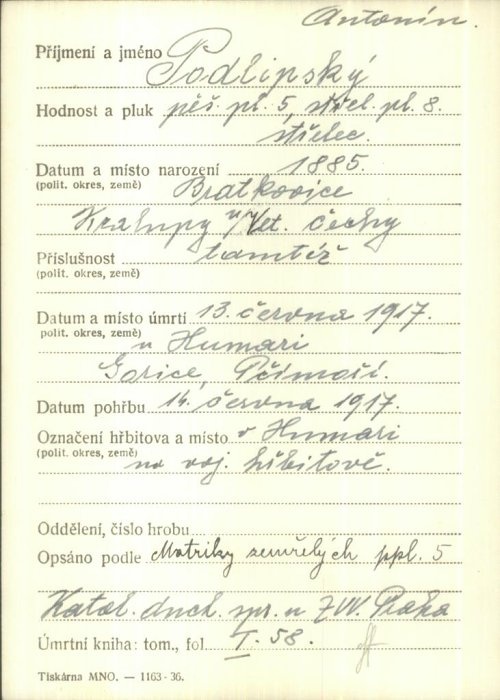 Antonín.
Příjmení a jméno Podlipský
Hodnost a pluk pěš. pl. 5, střel. pl. 8.
střelec.
Datum a místo narození 1885.
(polit. okres, země) Bratkovice
Kralupy n/Vlt. Čechy
Příslušnost tamtéž
(polit. okres, země)
Datum a místo úmrtí 13. června 1917.
polit. okres, země) u Humari
Gorice, Přímoří.
Datum pohřbu 14. června 1917.
Označení hřbitova a místo v Humari
(polit. okres, země) na voj. hřbitově.
Oddělení, číslo hrobu
Opsáno podle Matriky zemřelých ppl. 5
Katol. duch. spr. u ZVV. Praha
Úmrtní kniha: tom., fol. I. 58.
Tiskárna MNO. — 1163 - 36.